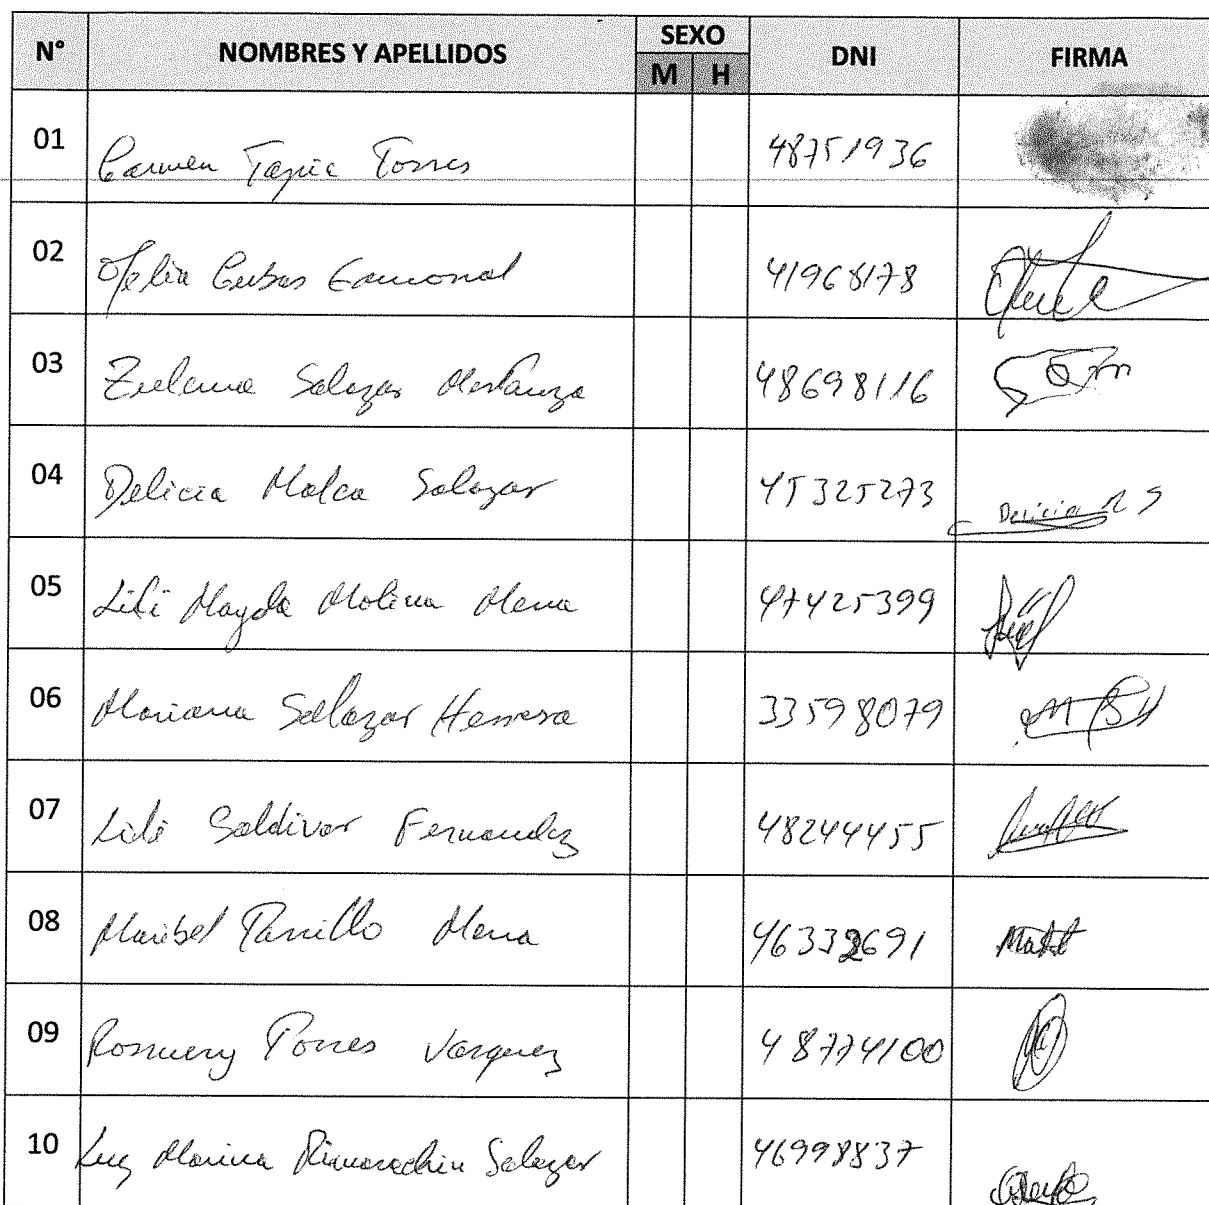 N° NOMBRES Y APELLIDOS SEXO DNI FIRMA
M H
01 Carmen Tapia Torres 48751936
02 Ofelia Cubas Gamonal 41968178
03 Zulema Salazar Mestanza 48698116
04 Delicia Malca Salazar 45325273 Delicia M S
05 Lili Magda Molina Mena 47425399
06 Mariana Salazar Herrera 33598079 MSH
07 Lili Saldivar Fernandez 48244455
08 Maribel Parrillo Mena 46332691
09 Rosmery Torres Vasquez 48774100
10 Luz Marina Rimarachin Salazar 46998837